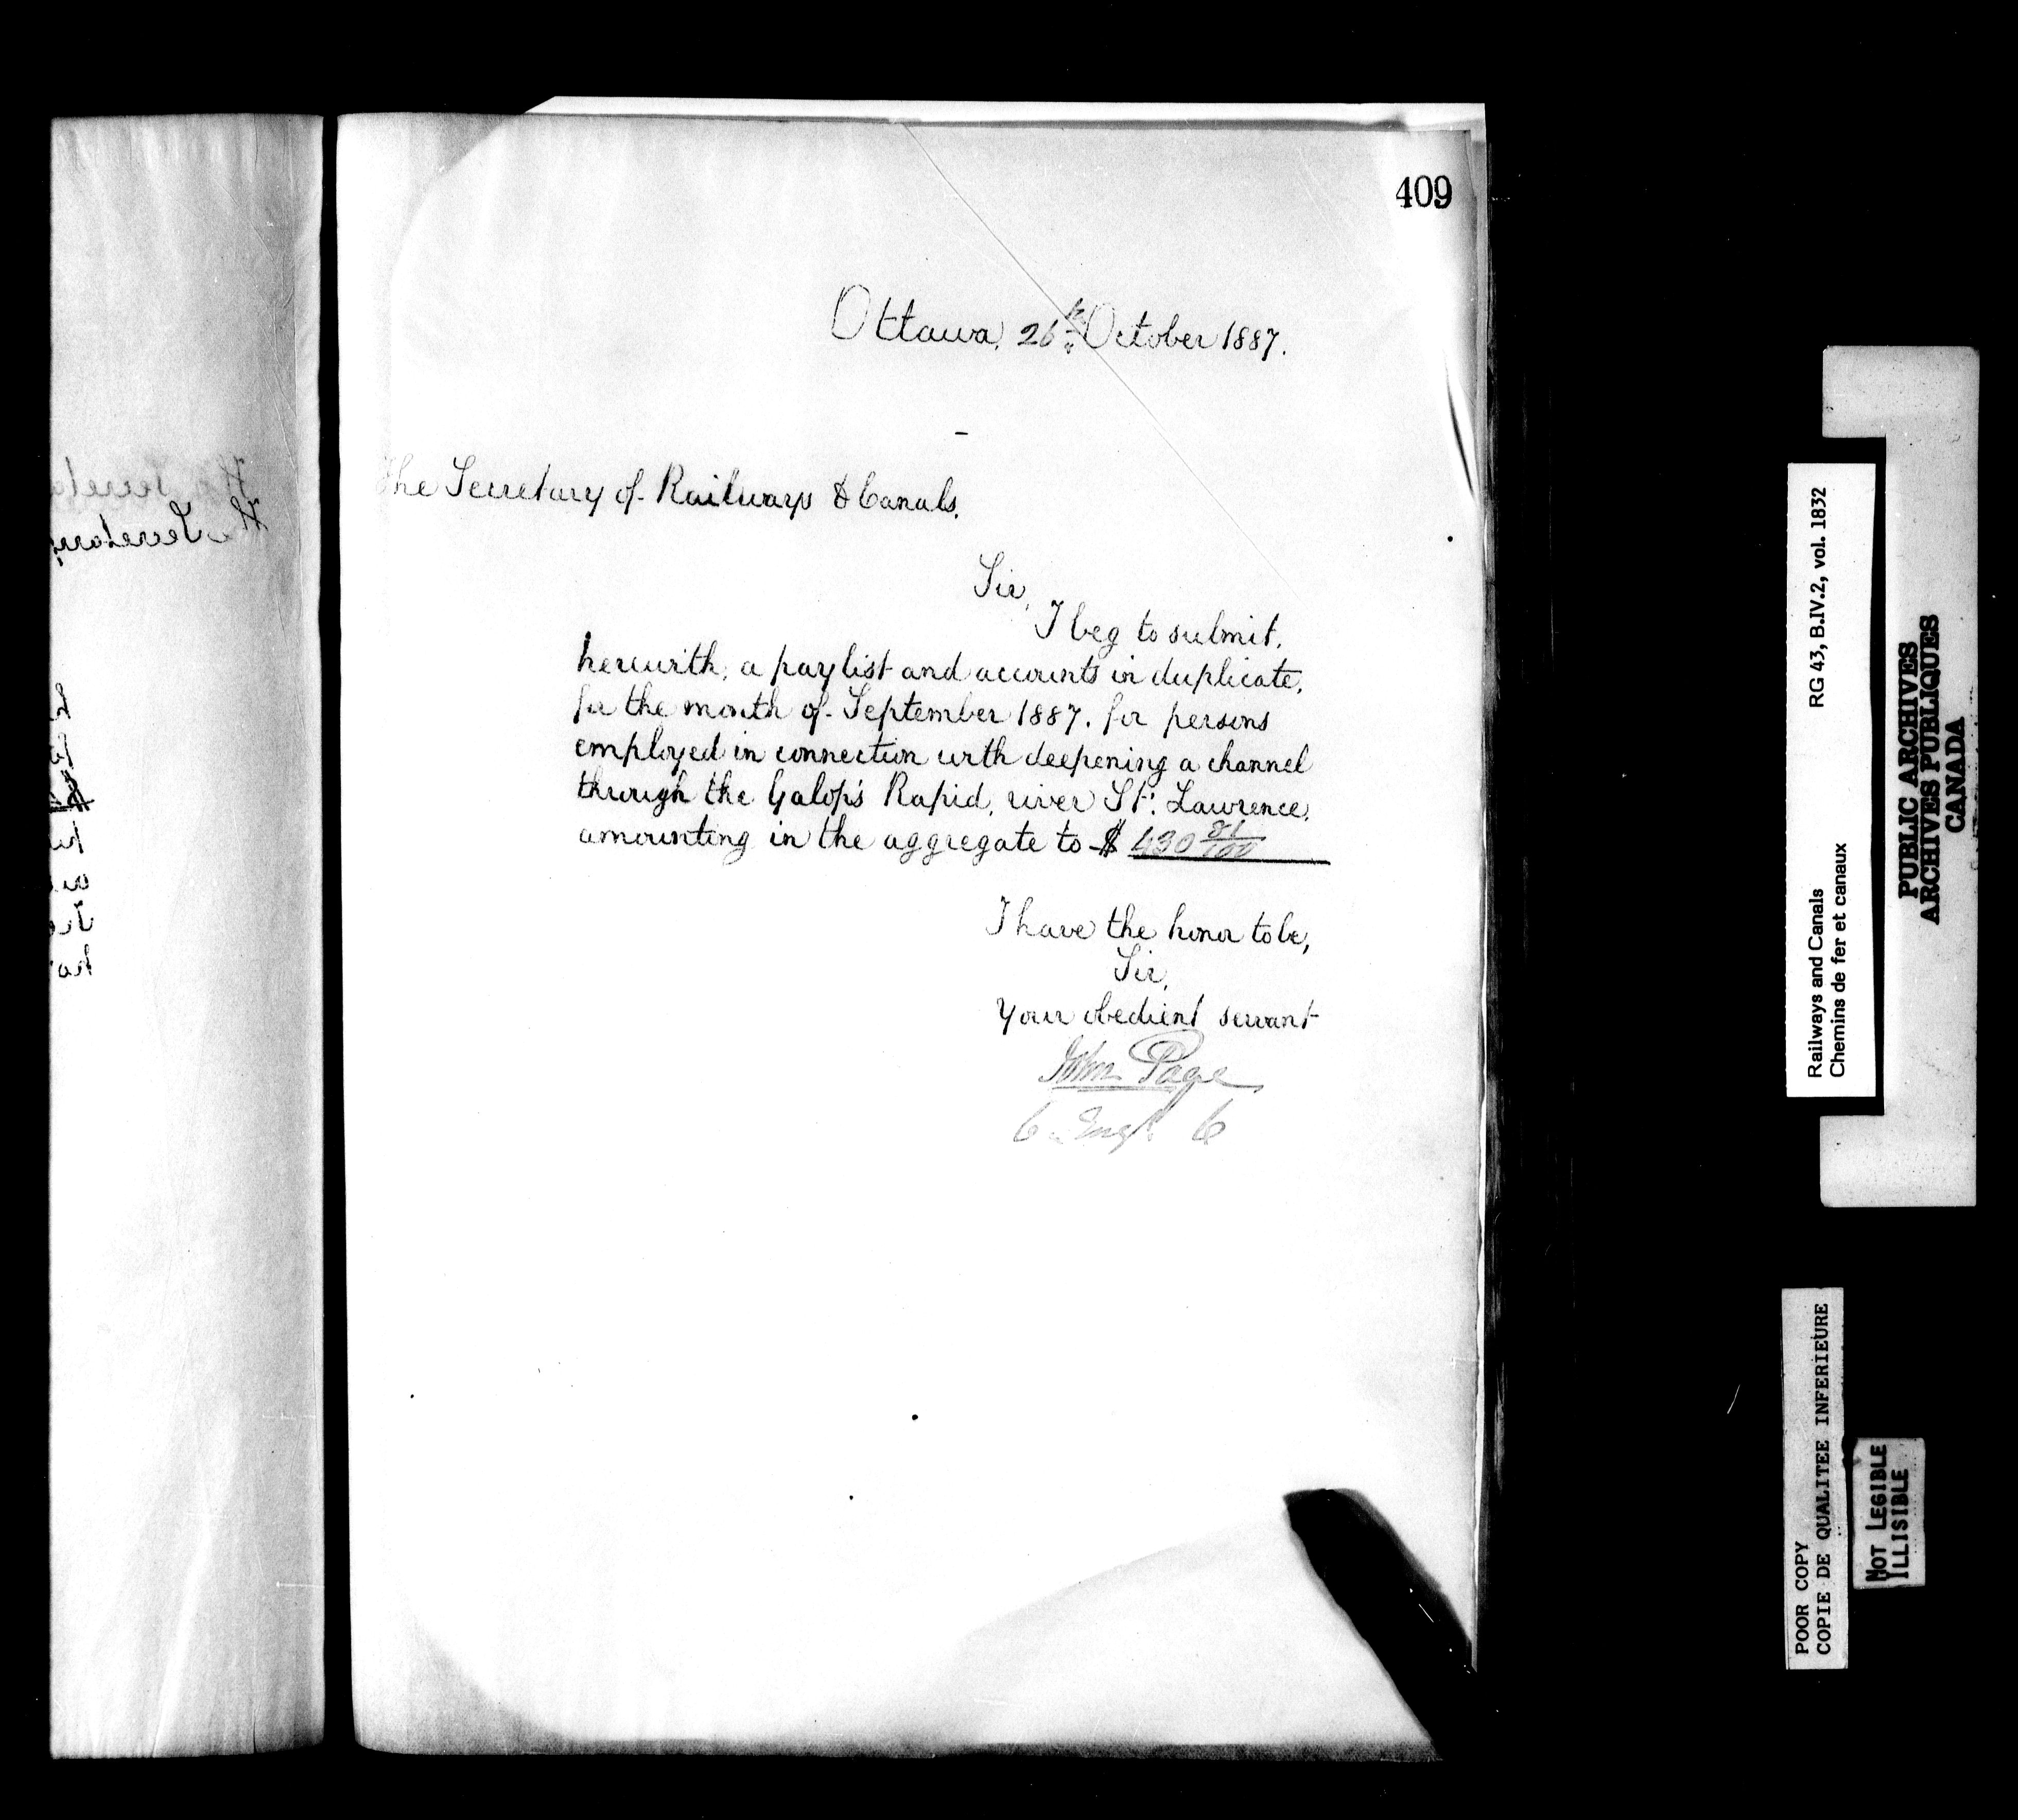 409
Ottawa, 26th October 1887.
The Secretary of Railways & Canals.
Sir,
I beg to submit,
herewith, a paylist and accounts in duplicate,
for the month of September 1887, for persons
employed in connection with deepening a channel
through the Galops Rapid, river St. Lawrence,
amounting in the aggregate to $ 430 81/100
I have the honor to be,
Sir,
Your obedient servant
John Page
C. Engr. C
Railways and Canals RG 43, B.IV.2, vol. 1832
Chemins de fer et canaux
PUBLIC ARCHIVES
ARCHIVES PUBLIQUES
CANADA
POOR COPY
COPIE DE QUALITEE INFERIEURE
NOT LEGIBLE
ILLISIBLE